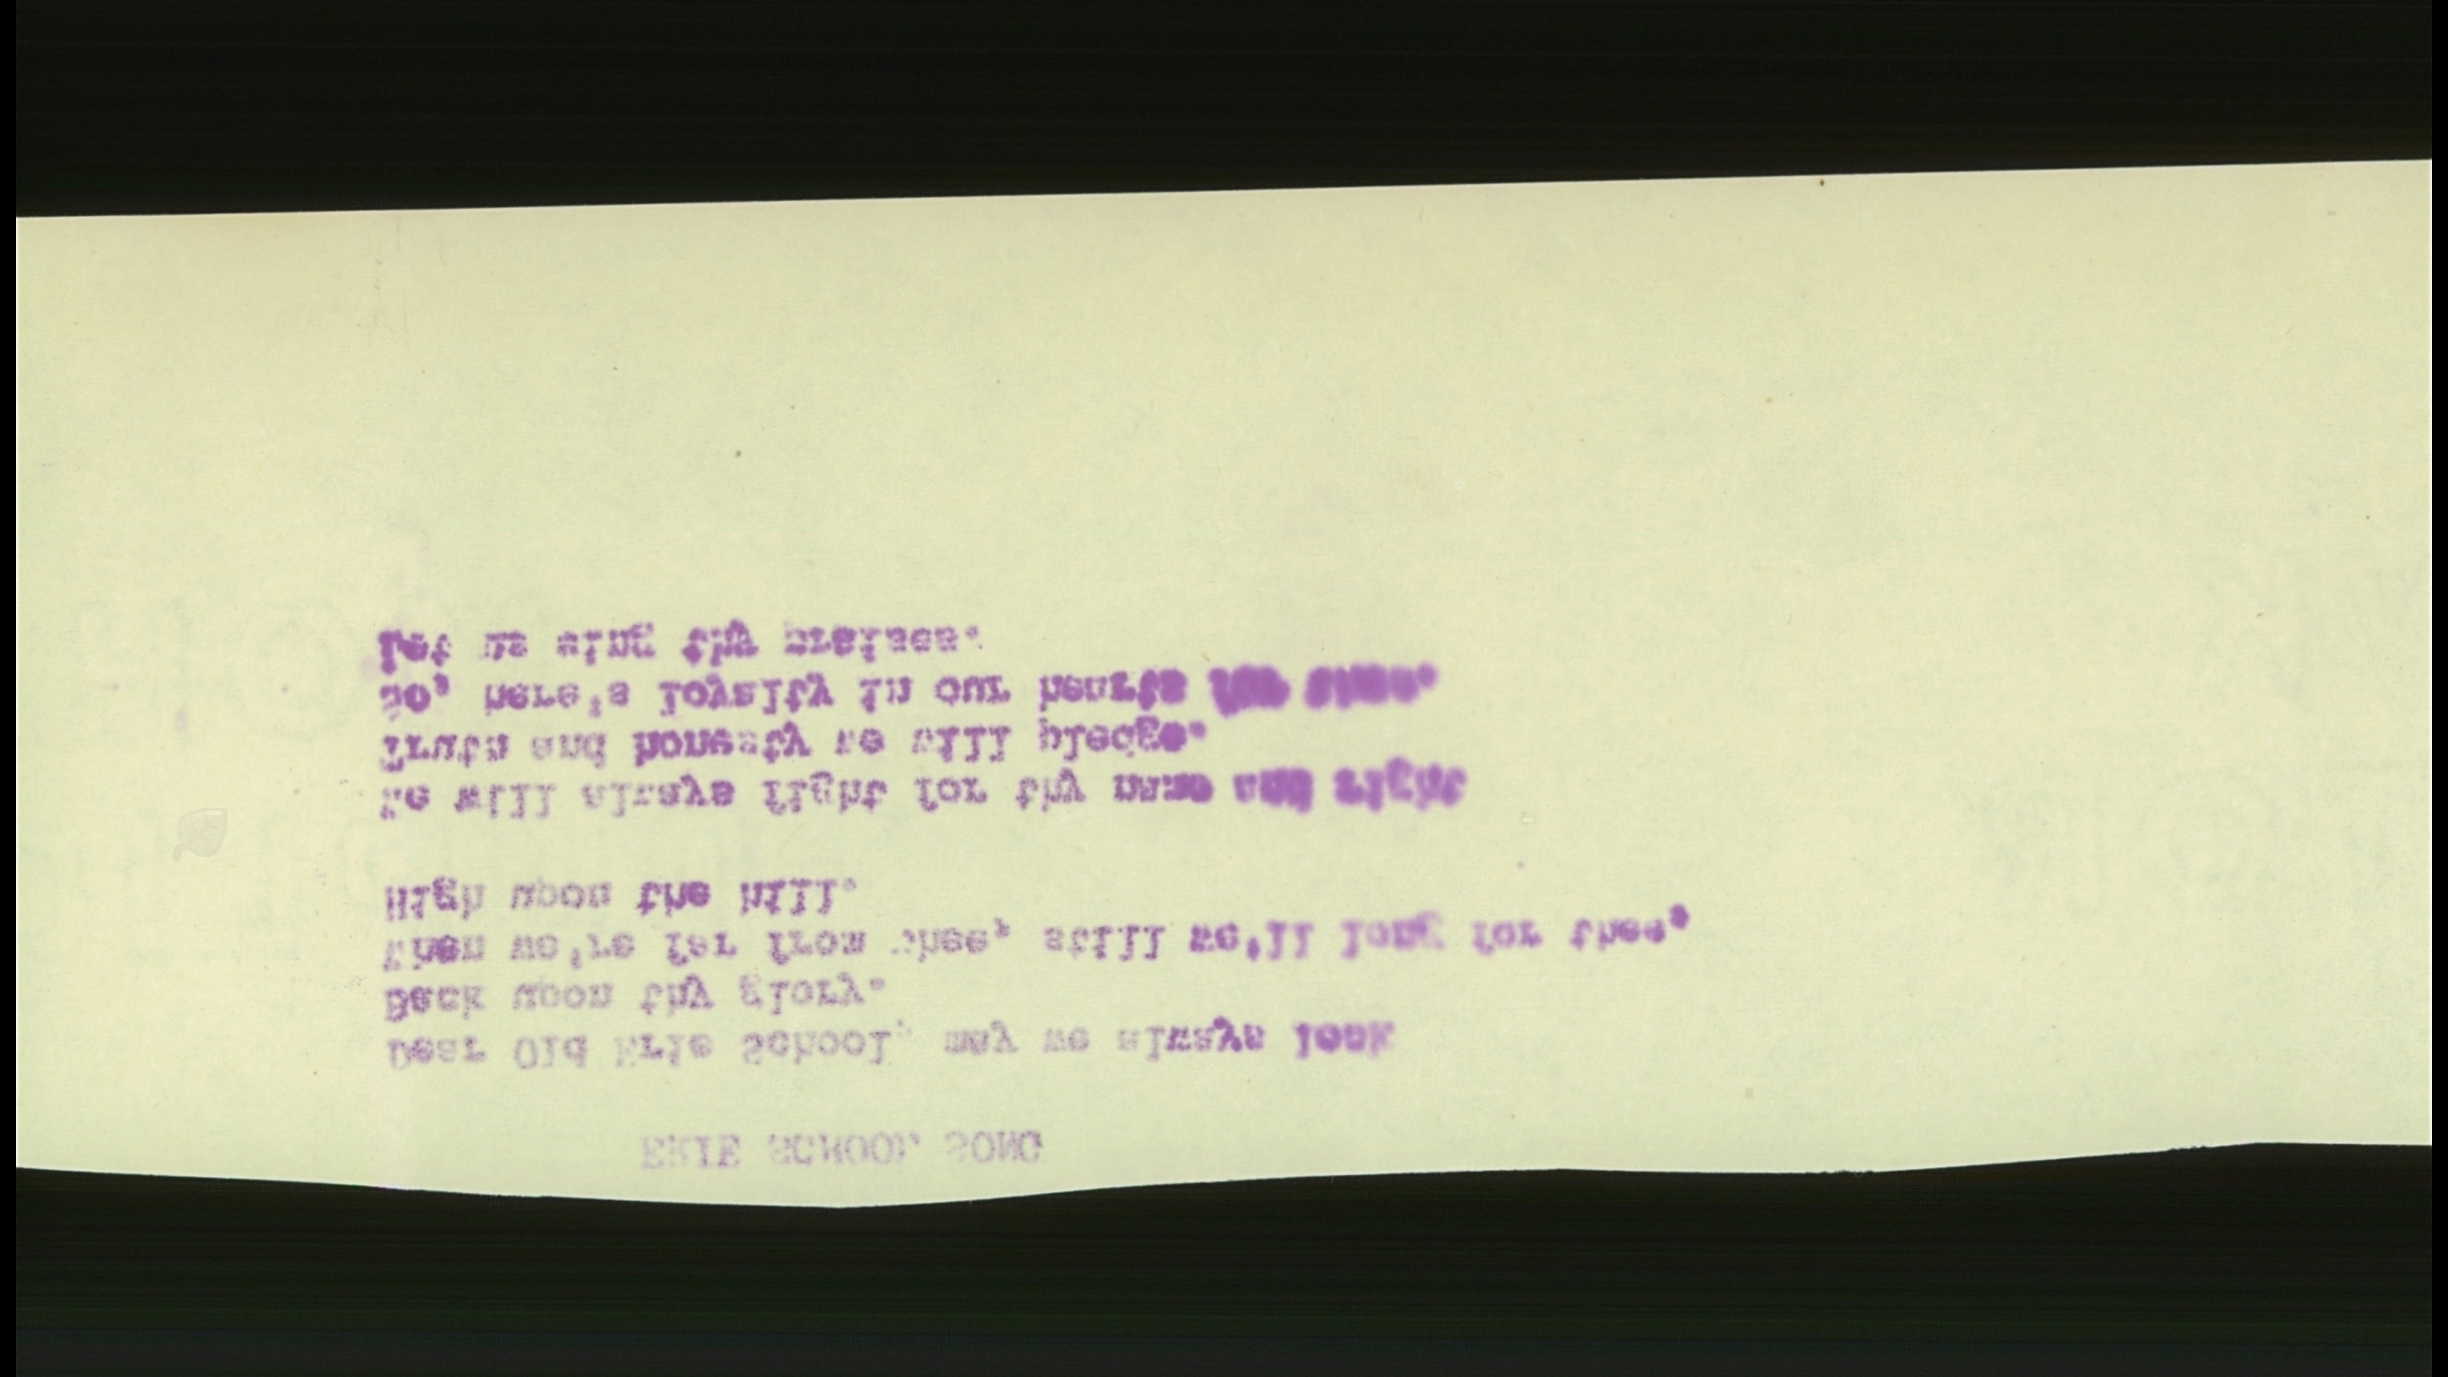 ERIE SCHOOL SONG
Dear Old Erie School, may we always look
Back upon thy glory.
When we're far from thee, still we'll long for thee,
High upon the hill.
We will always fight for thy name and right
Truth and honesty we will pledge.
So, here's loyalty in our hearts for
Let us sing thy praises.